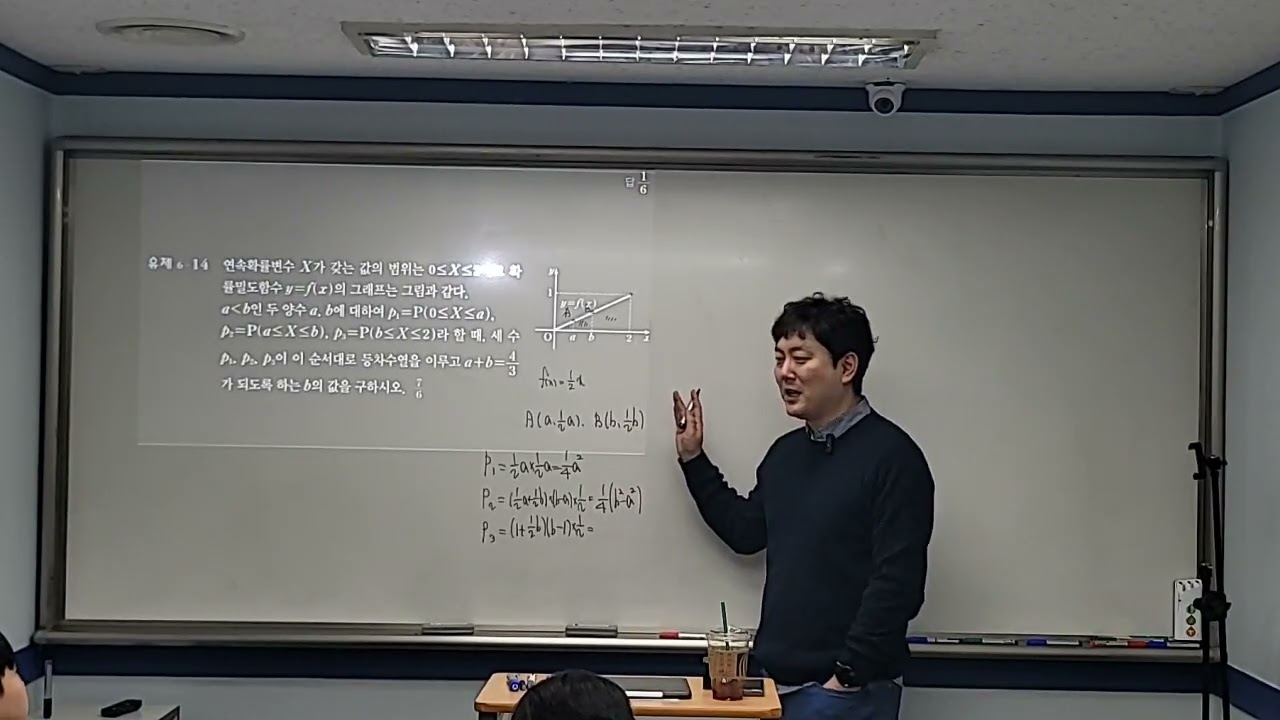 답 1/6
유제 6-14 연속확률변수 X가 갖는 값의 범위는 0≤X≤ 확
률밀도함수 y=f(x)의 그래프는 그림과 같다.
a<b인 두 양수 a, b에 대하여 p₁=P(0≤X≤a),
p₂=P(a≤X≤b), p₃=P(b≤X≤2)라 할 때, 세 수
p₁, p₂, p₃이 이 순서대로 등차수열을 이루고 a+b=4/3
가 되도록 하는 b의 값을 구하시오. 7/6
y
1
y=f(x)
O a b 2 x
f(x)=1/2x
A(a, 1/2a). B(b, 1/2b)
P₁=1/2a×1/2a=1/4a²
P₂=(1/2a+1/2b)×(b-a)×1/2=1/4(b²-a²)
P₃=(1+1/2b)(b-1)×1/2=